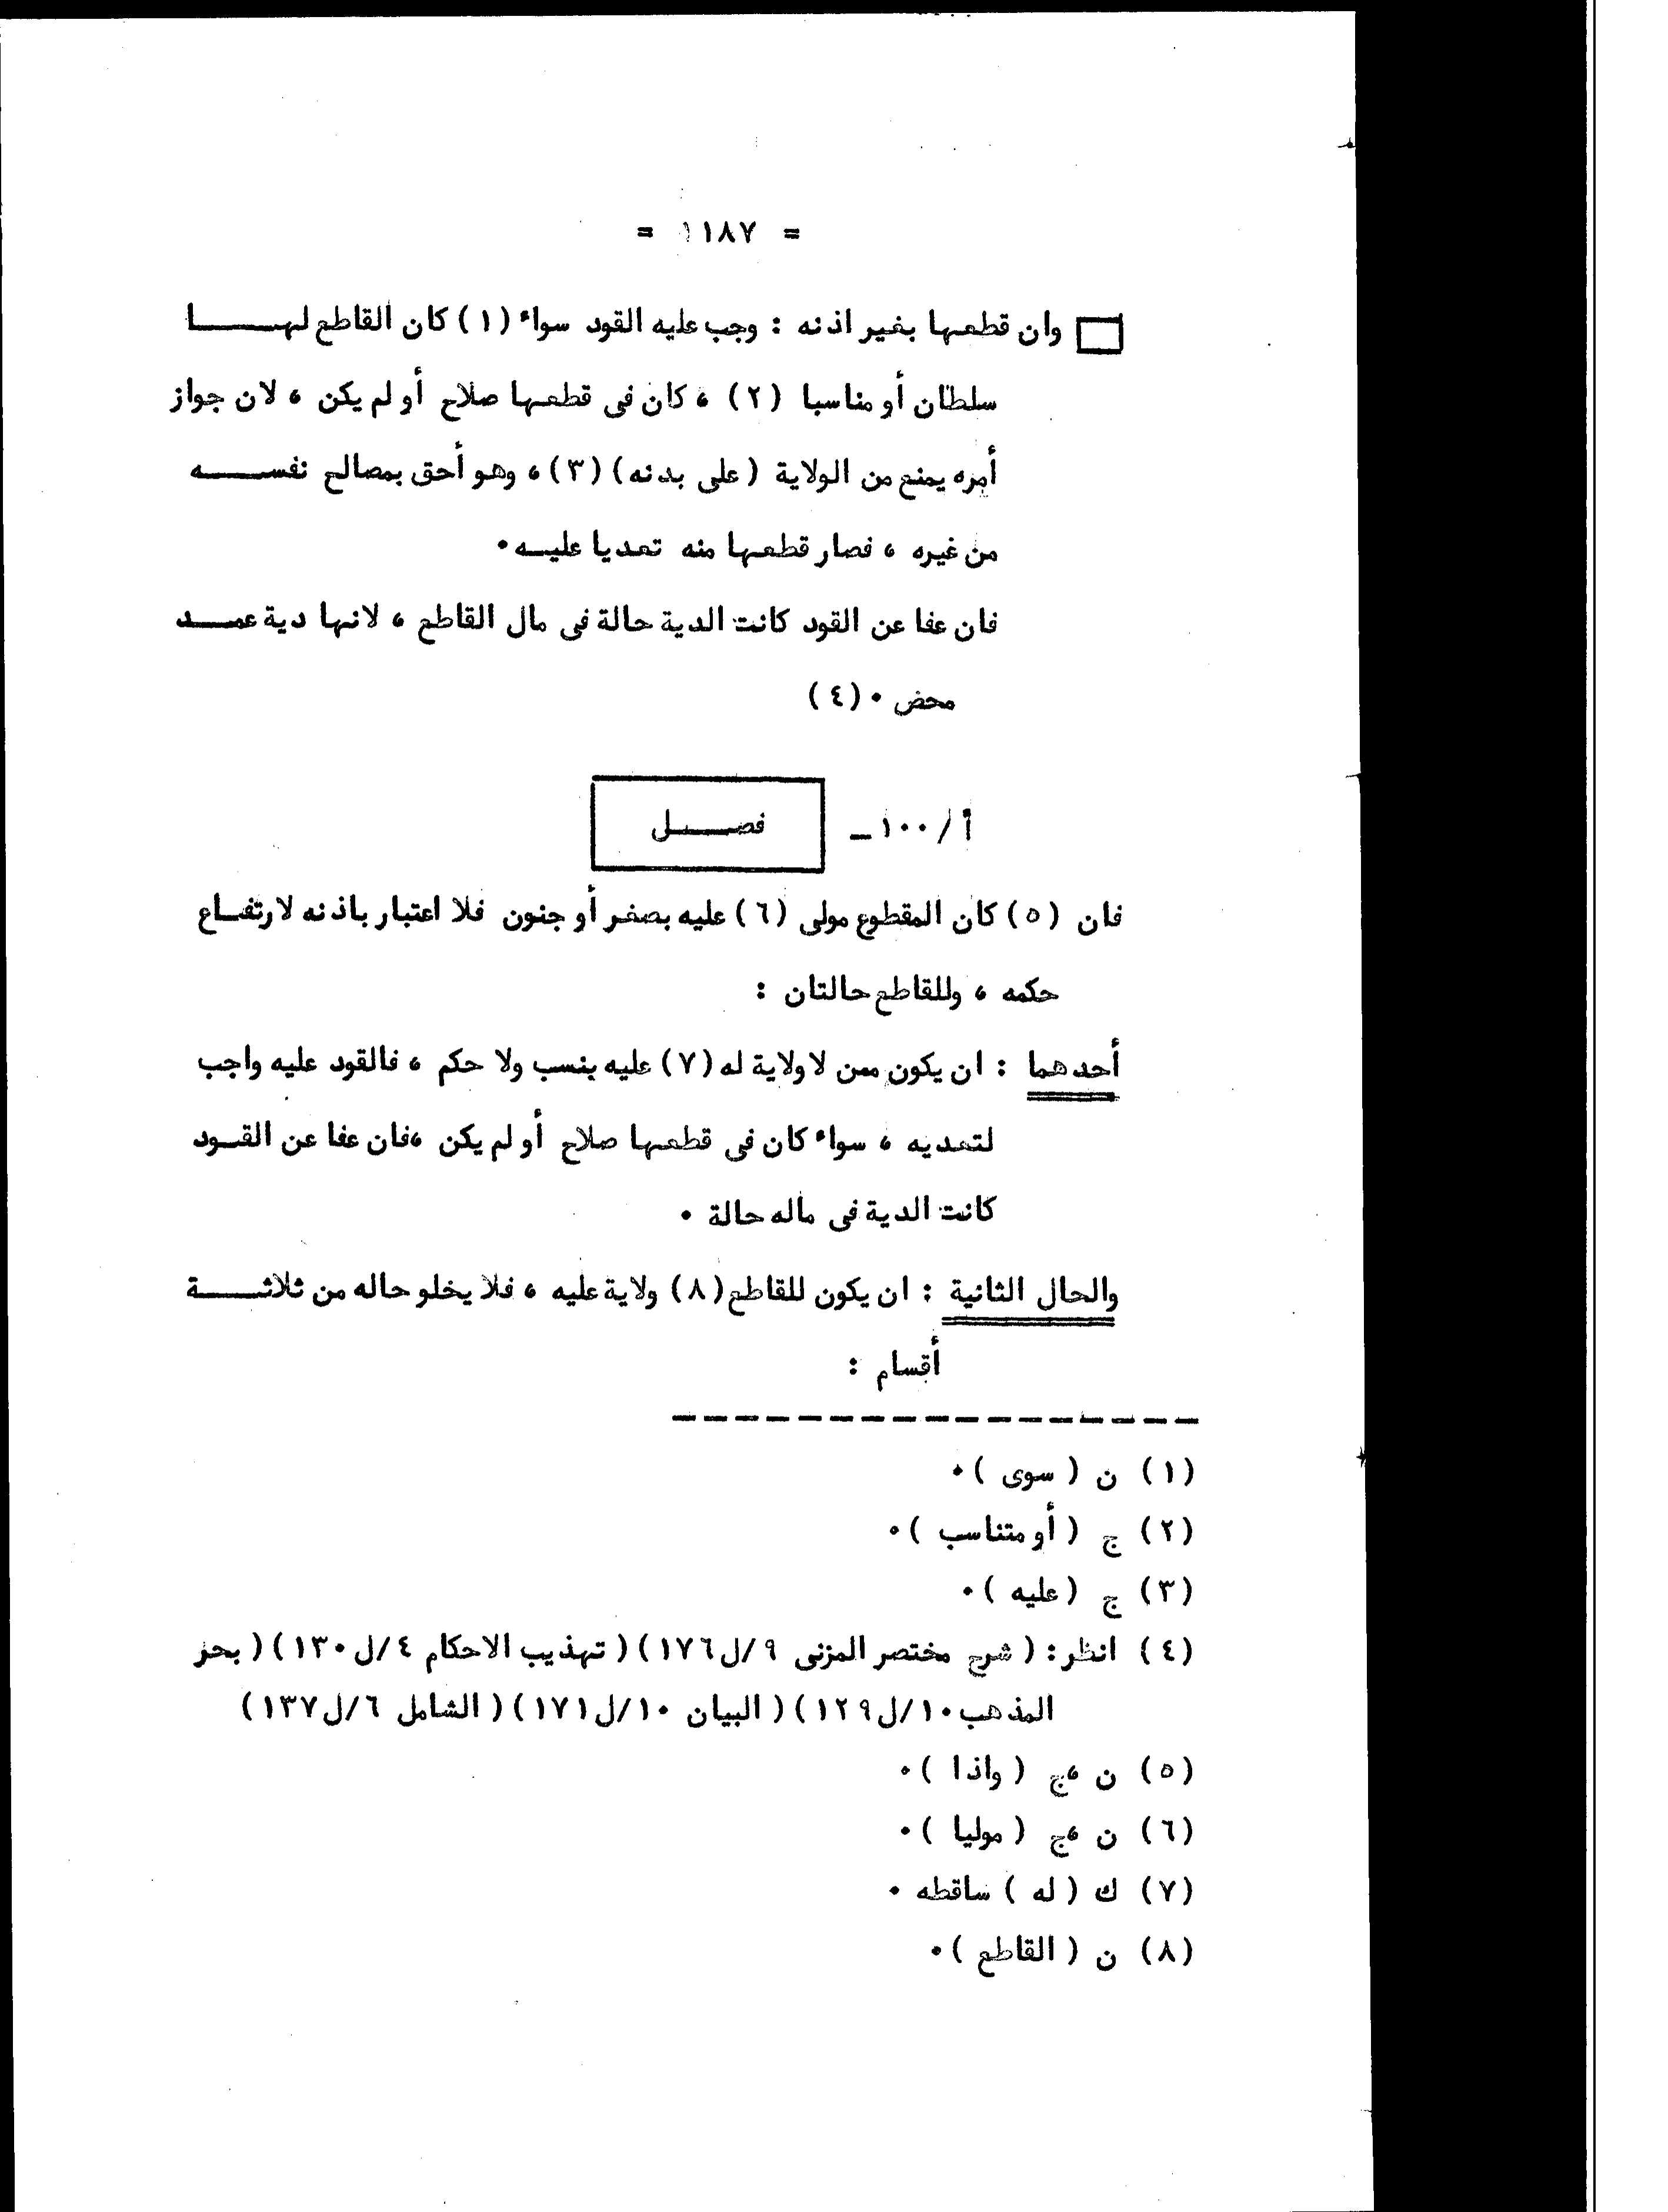 = ١١٨٧ =
وان قطعها بغير اذنه : وجب عليه القود سواء (١) كان القاطع لهـــــا
سلطان أو مناسبا (٢) ، كان فى قطعها صلاح أو لم يكن ، لان جواز
أمره يمنع من الولاية (على بدنه) (٣) ، وهو أحق بمصالح نفســــه
من غيره ، فصار قطعها منه تعديا عليــه .
فان عفا عن القود كانت الدية حالة فى مال القاطع ، لانها دية عمــــد
محض . (٤)
أ / ١٠٠ ــ فصـــــل
فان (٥) كان المقطوع مولى (٦) عليه بصغر أو جنون فلا اعتبار باذنه لارتفـاع
حكمه ، وللقاطع حالتان :
أحدهما : ان يكون ممن لا ولاية له (٧) عليه بنسب ولا حكم ، فالقود عليه واجب
لتعديه ، سواء كان فى قطعها صلاح أو لم يكن ، فان عفا عن القــود
كانت الدية فى ماله حالة .
والحال الثانية : ان يكون للقاطع (٨) ولاية عليه ، فلا يخلو حاله من ثلاثـــــة
أقسام :
(١) ن ( سوى ) .
(٢) ج ( أو متناسب ) .
(٣) ج ( عليه ) .
(٤) انظر : ( شرح مختصر المزنى ٩/ل١٧٦ ) ( تهذيب الاحكام ٤/ل١٣٠ ) ( بحر
المذهب ١٠/ل١٢٩ ) ( البيان ١٠/ل١٧١ ) ( الشامل ٦/ل١٣٧ )
(٥) ن ،ج ( واذا ) .
(٦) ن ،ج ( موليا ) .
(٧) ك ( له ) ساقطه .
(٨) ن ( القاطع ) .